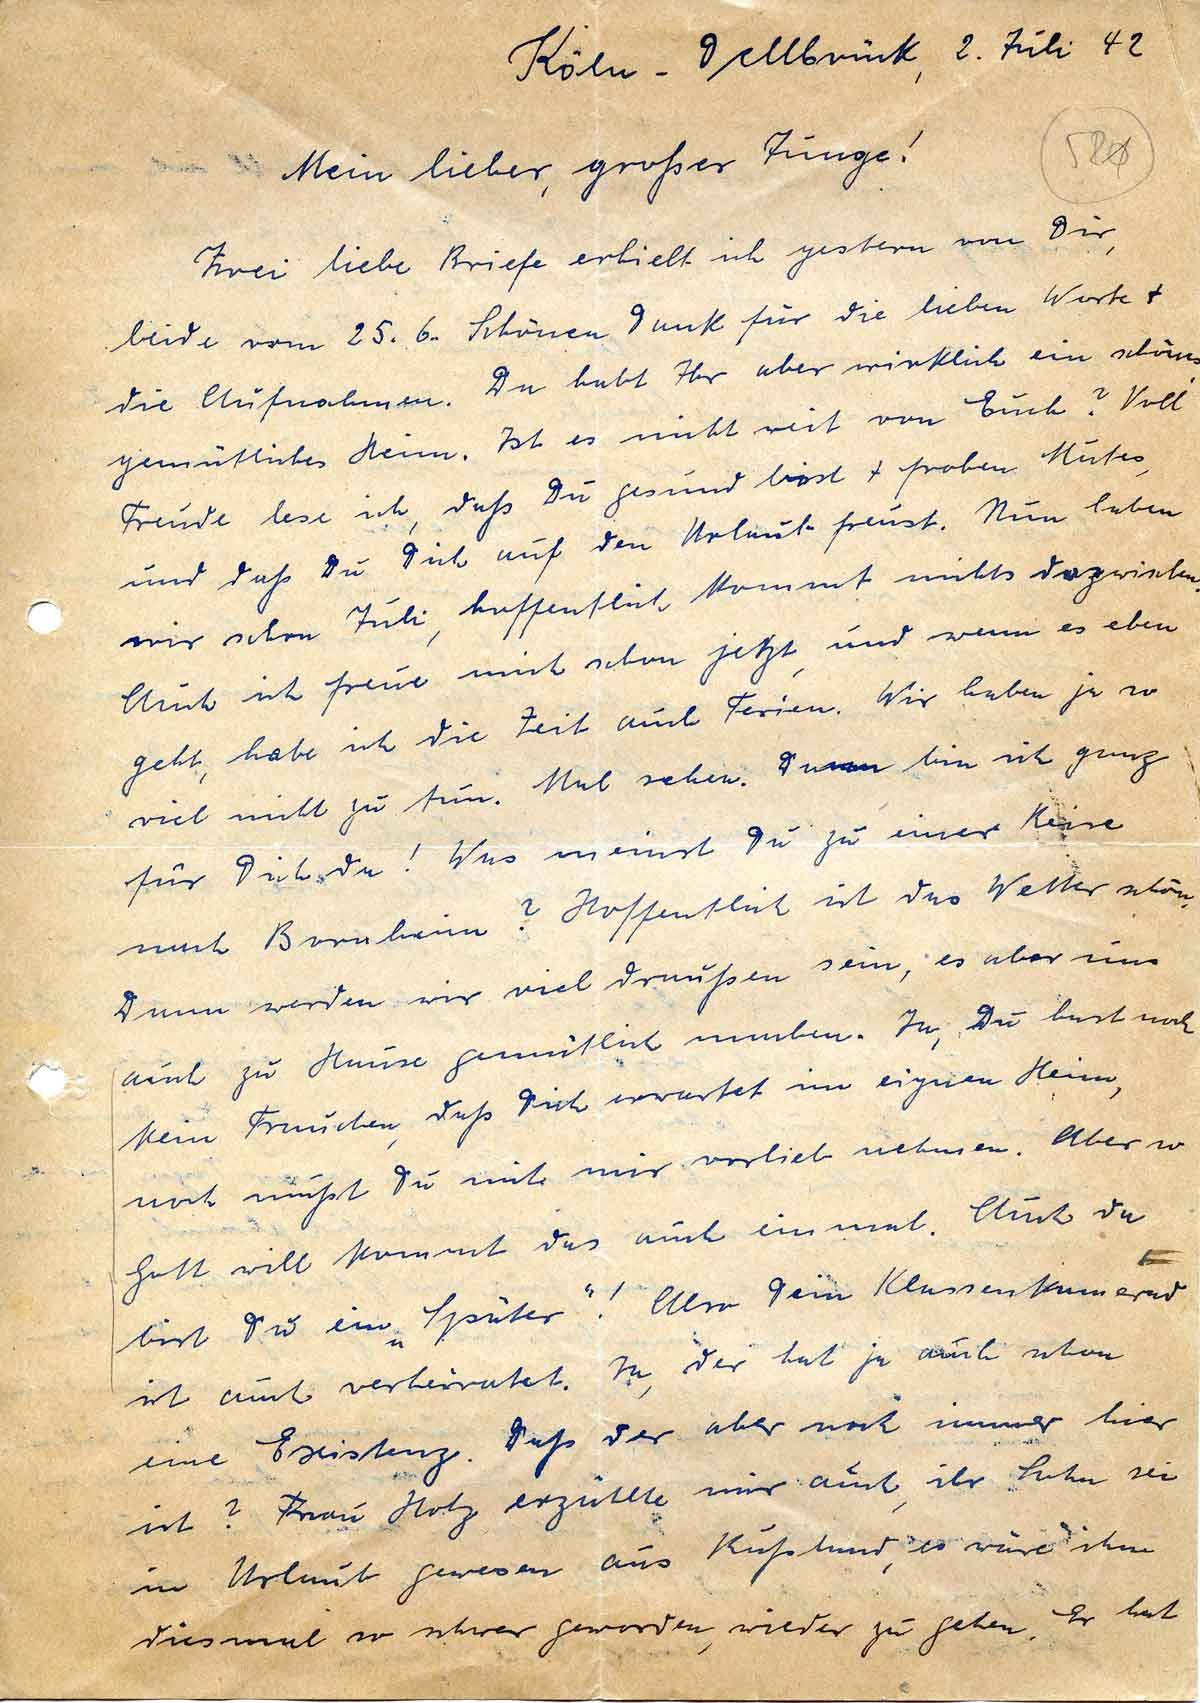 Köln - Dellbrück, 2. Juli 42
Mein lieber, großer Junge!
Zwei liebe Briefe erhielt ich gestern von Dir,
beide vom 25. 6. Schönen Dank für die lieben Worte +
die Aufnahmen. Da habt Ihr aber wirklich ein schönes
gemütliches Heim. Ist es nicht weit von Euch? Voll
Freude lese ich, daß Du gesund bist + frohen Mutes,
und daß Du Dich auf den Urlaub freust. Nun haben
wir schon Juli, hoffentlich kommt nichts dazwischen.
Auch ich freue mich schon jetzt, und wenn es eben
geht, habe ich die Zeit auch Ferien. Wir haben ja so
viel nicht zu tun. Mal sehen. Dann bin ich ganz
für Dich da! Was meinst Du zu einer Reise
nach Bornheim? Hoffentlich ist das Wetter schön.
Dann werden wir viel draußen sein, es aber uns
auch zu Hause gemütlich machen. Ja, Du hast noch
kein Frauchen, daß Dich erwartet im eignen Heim,
noch mußt Du mit mir vorlieb nehmen. Aber so
Gott will kommt das auch einmal. Auch da
bist Du ein „Später“! Also Dein Klassenkamerad
ist auch verheiratet. Ja, der hat ja auch schon
eine Existenz. Daß der aber noch immer hier
ist? Frau Hotz erzählte mir auch, ihr Sohn sei
in Urlaub gewesen aus Rußland, es wäre ihm
diesmal so schwer geworden, wieder zu gehen. Er hat